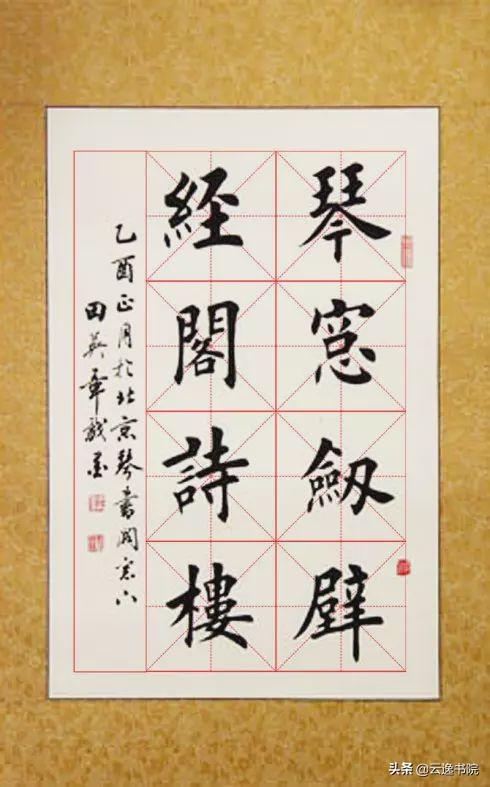 琴窓劒壁
經閣詩樓
乙酉正月於北京琴書閣窓下
田英章戲墨
头条 @云逸书院